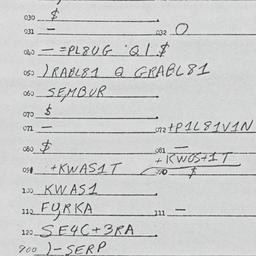 030 $
031 – 032 O
040 – =PL8UG Q1 $
050 )RABL81 Q GRABL81
060 SEMBUR
070 $
071 – 072 +P1L81V1N
080 $ 081 –
091 +KWAS1T +KWOS+1T
$
100 KWAS1
110 FYRKA 111 –
120 SE4C+3RA
200 )–SERP